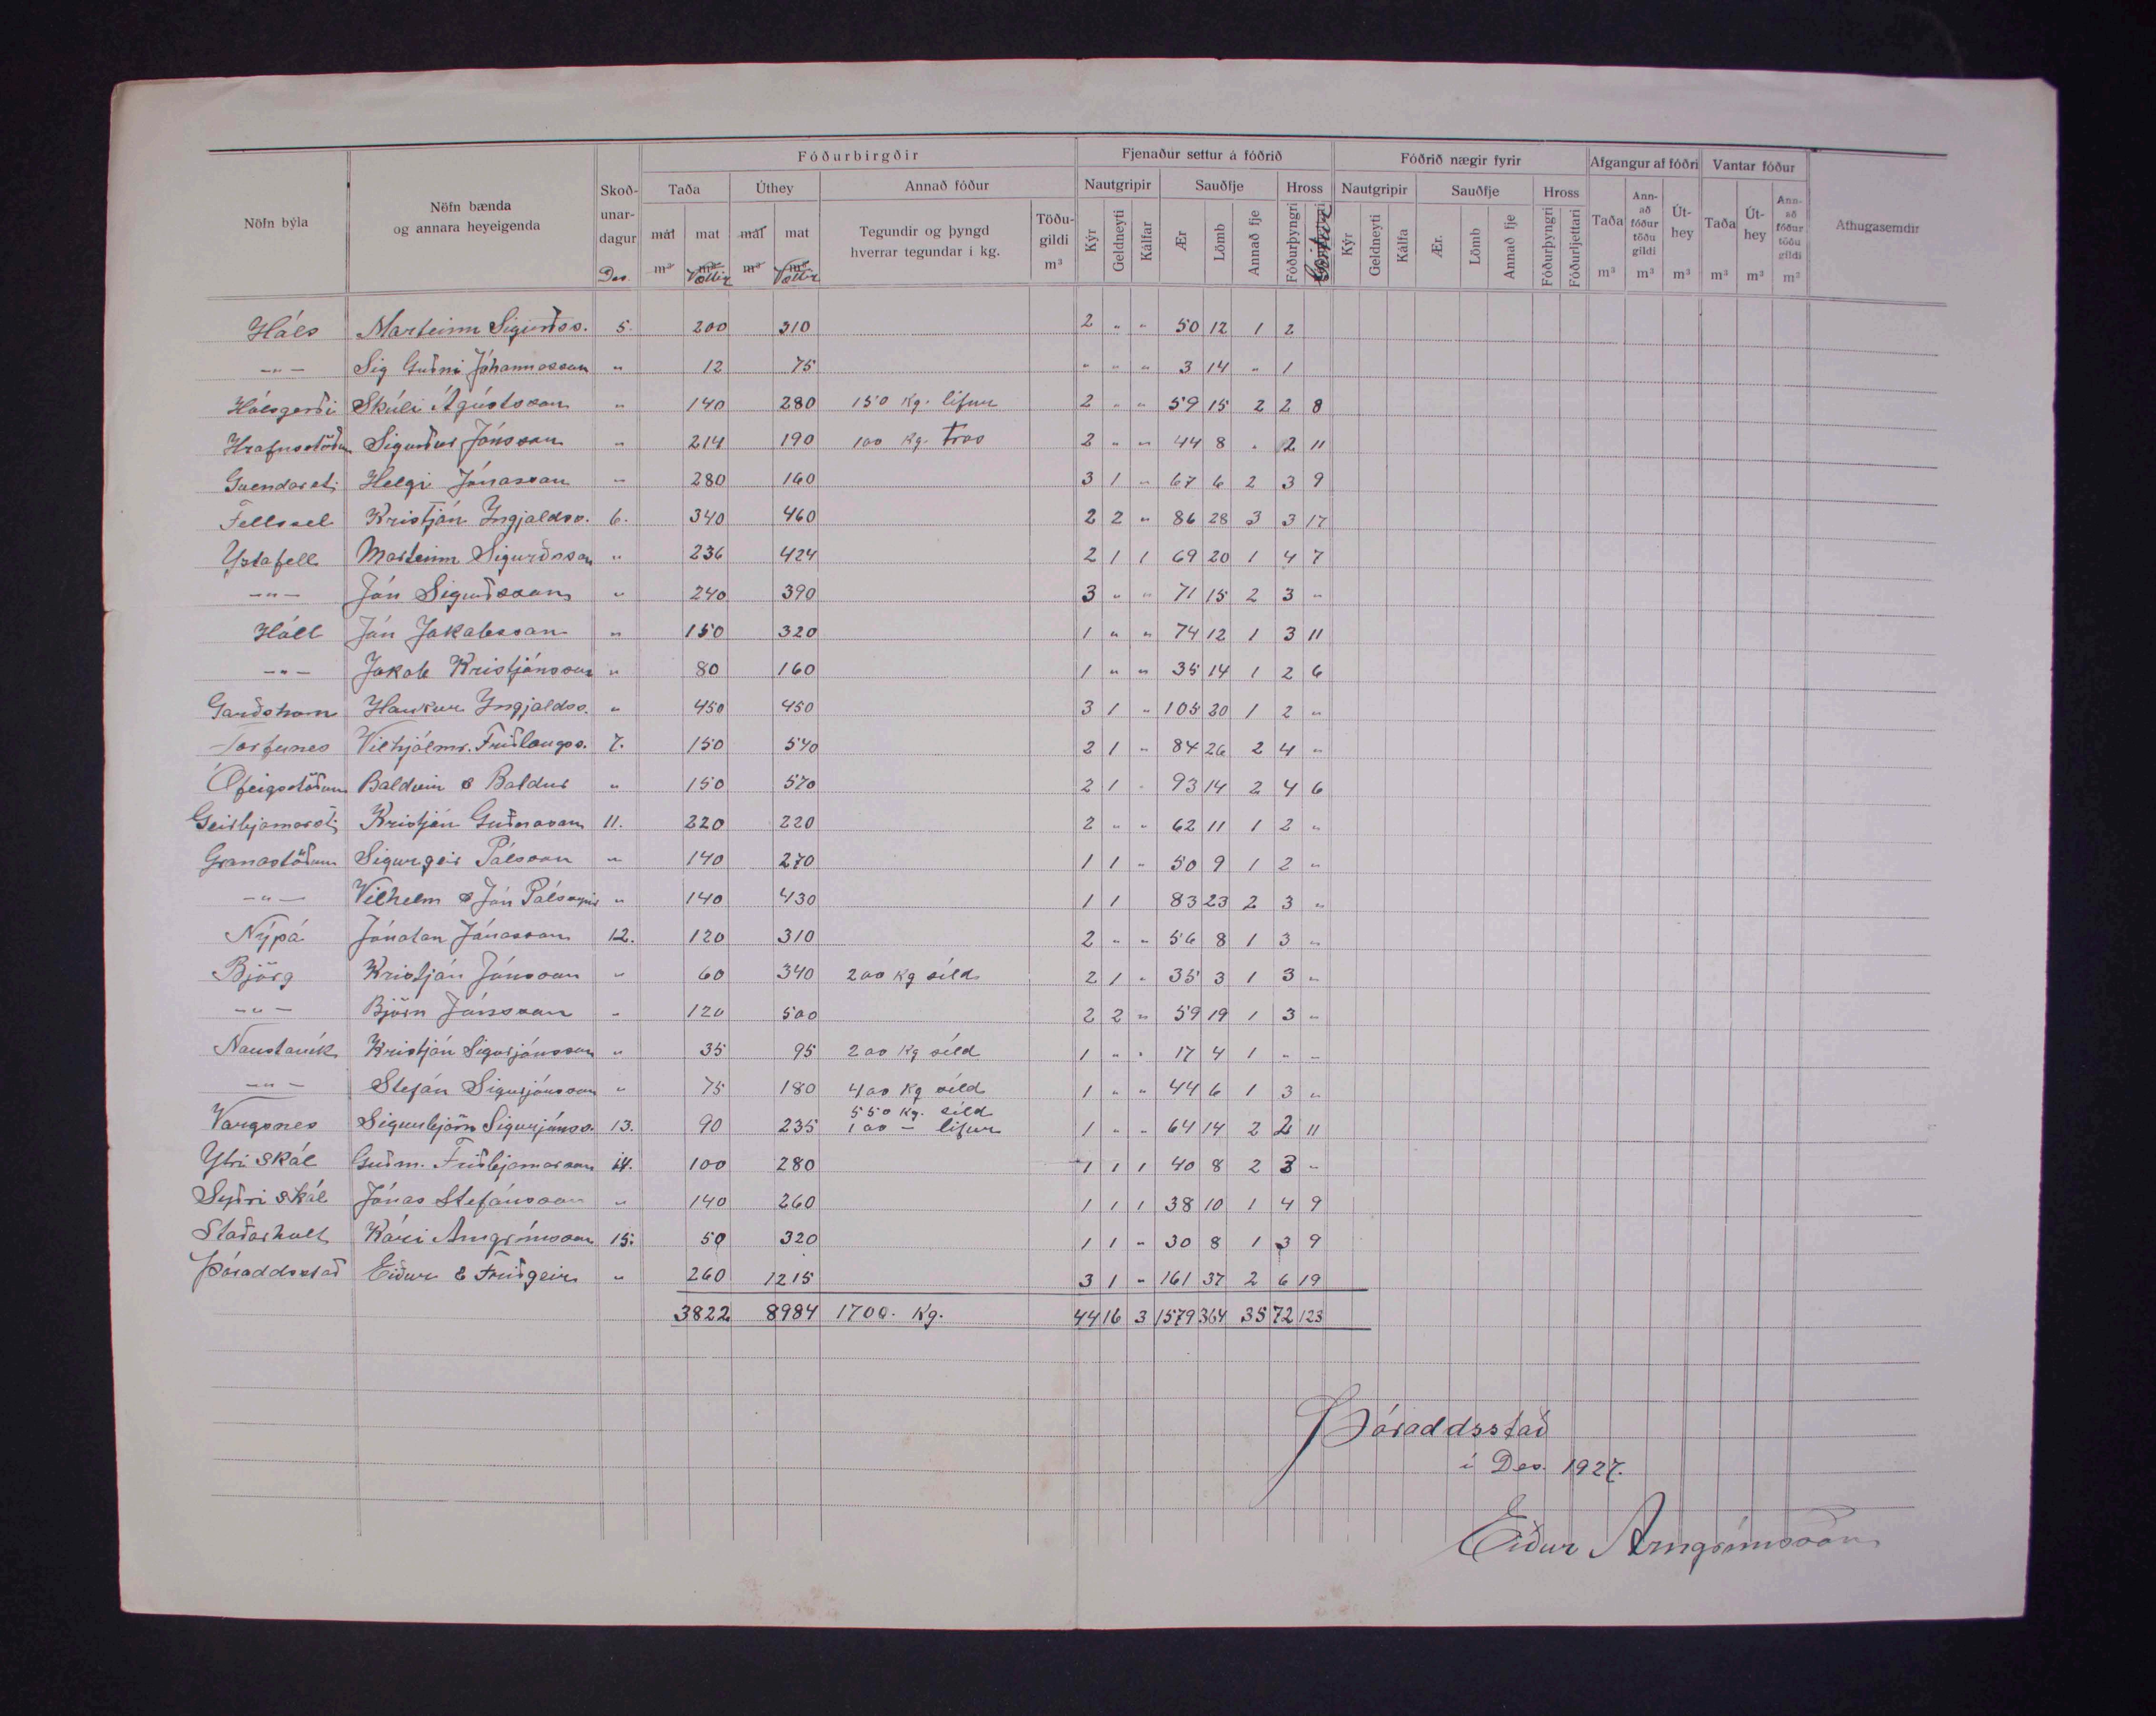 Fóðurbirgðir Fjenaður settur á fóðrið Fóðrið nægir fyrir Afgangur af fóðri Vantar fóður
Nöfn býla Nöfn bænda og annara heyeigenda Skoð-unar-dagur Taða Úthey Annað fóður Nautgripir Sauðfje Hross Nautgripir Sauðfje Hross Taða Ann-að fóður töðu gildi Út-hey Taða Út-hey Ann-að fóður töðu gildi Athugasemdir
mál mat mál mat Tegundir og þyngd hverrar tegundar i kg. Töðu-gildi m³ Kýr Geldneyti Kálfar Ær Lömb Annað fje Fóðurþyngri Kýr Geldneyti Kálfa Ær. Lömb Annað fje Fóðurþyngri Fóðurljettari
Des. m³ m³ Vættir m³ m³ Vættir m³ m³ m³ m³ m³ m³
Háls Marteinn Sigurðss. 5. 200 310 2 " " 50 12 1 2
-"- Sig Guðni Jóhannesson " 12 75 " " " 3 14 " 1
Hálsgerði Skúli Ágústsson " 140 280 150 kg. lifur 2 " " 59 15 2 2 8
Hrafnsstöðum Sigurður Jónsson " 214 190 100 kg. Tros 2 " " 44 8 . 2 11
Guendarst: Helgi Jónasson " 280 160 3 1 " 67 6 2 3 9
Fellssel Kristján Ingjaldss. 6. 340 460 2 2 " 86 28 3 3 17
Ystafell Marteinn Sigurðsson " 236 424 2 1 1 69 20 1 4 7
-"- Jón Sigurðsson " 240 390 3 " " 71 15 2 3 "
Hóll Jón Jakobsson " 150 320 1 " " 74 12 1 3 11
-"- Jakob Kristjánsson " 80 160 1 " " 35 14 1 2 6
Garðshorn Haukur Ingjaldss. " 450 450 3 1 " 105 20 1 2 "
Torfunes Vilhjálmr. Friðlaugss. 7. 150 540 2 1 " 84 26 2 4 "
Ófeigsstöðum Baldvin & Baldur " 150 570 2 1 " 93 14 2 4 6
Geirbjarnarst: Kristján Guðnason 11. 220 220 2 " " 62 11 1 2 "
Granastöðum Sigurgeir Pálsson " 140 270 1 1 " 50 9 1 2 "
-"- Vilhelm & Jón Pálssynir " 140 430 1 1 83 23 2 3 "
Nýpá Jónatan Jónasson 12. 120 310 2 " " 56 8 1 3 "
Björg Kristján Jónsson " 60 340 200 kg síld 2 1 " 35 3 1 3 "
-"- Björn Jónsson " 120 500 2 2 " 59 19 1 3 "
Naustavík Kristján Sigurjónsson " 35 95 200 kg síld 1 " " 17 4 1 " "
-"- Stefán Sigurjónsson " 75 180 400 kg síld 1 " " 44 6 1 3 "
Vargsnes Sigurbjörn Sigurjónss. 13. 90 235 550 kg. síld 100 - lifur 1 " " 64 14 2 2 11
Ytri Skál Guðm. Friðbjarnarson 14. 100 280 1 1 1 40 8 2 3 "
Syðri Skál Jónas Stefánsson " 140 260 1 1 1 38 10 1 4 9
Staðarholt Kári Arngrímsson 15. 50 320 1 1 " 30 8 1 3 9
Þóroddsstað Eiður & Friðgeir " 260 1215 3 1 " 161 37 2 6 19
3822 8984 1700. kg. 44 16 3 1579 364 35 72 123
Þóroddsstað
í Des. 1927.
Eiður Arngrímsson